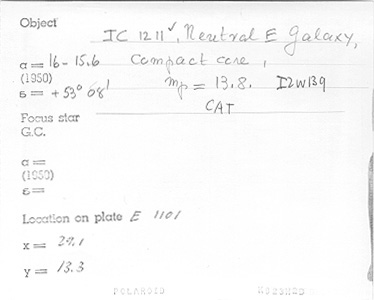 Object IC 1211✓, Neutral E Galaxy,
α = 16 - 15.6 Compact core,
(1950) mp = 13.8. IZw139
δ = +53° 08' CAT
Focus star
G.C.
α =
(1950)
δ =
Location on plate E 1101
x = 29.1
y = 13.3
POLAROID